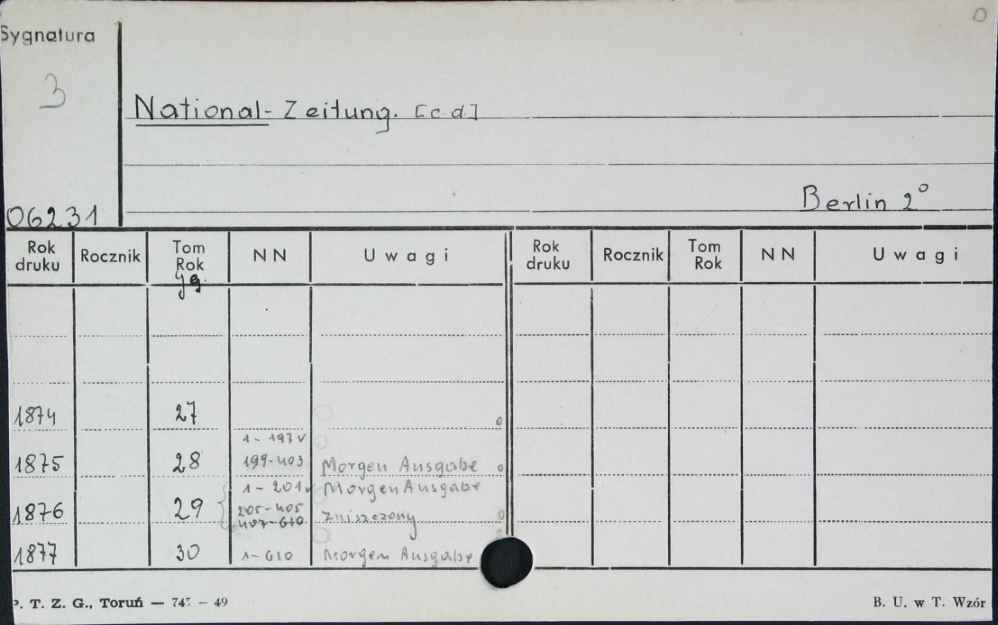 Sygnatura
3
National-Zeitung. [c d]
06231
Berlin 2°
Rok druku Rocznik Tom Rok NN Uwagi Rok druku Rocznik Tom Rok NN Uwagi
Jg.
1874 27
1 - 197 v
1875 28 199-403 Morgen Ausgabe
1 - 201 v Morgen Ausgabe
1876 29 205-405 Zniszczony
407-610
1877 30 1-610 Morgen Ausgabe
P. T. Z. G., Toruń — 747 - 49 B. U. w T. Wzór